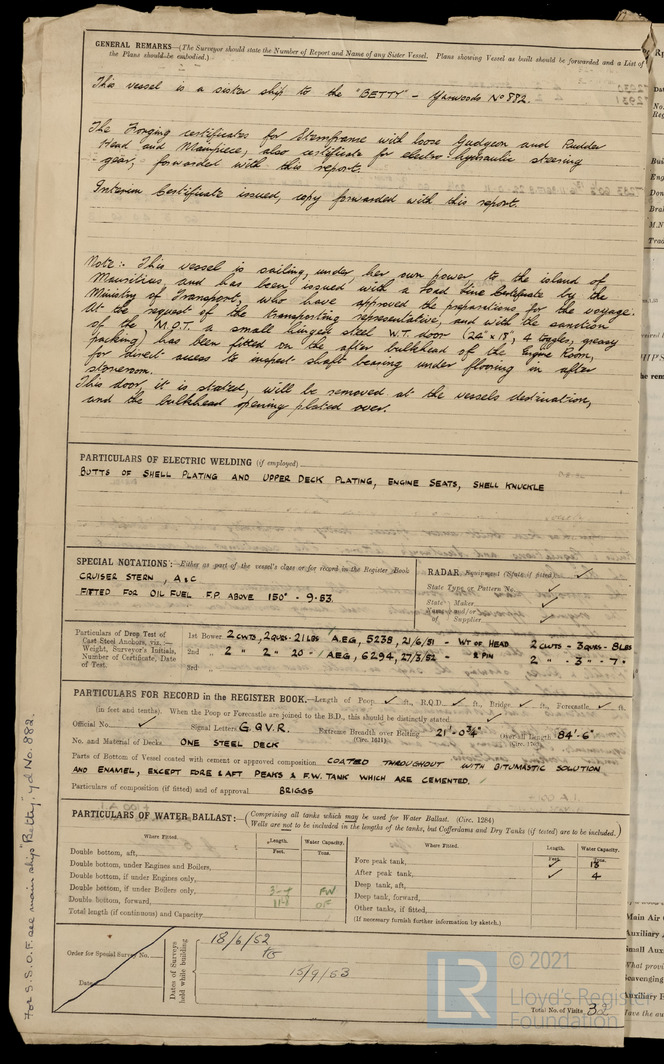 GENERAL REMARKS—(The Surveyor should state the Number of Report and Name of any Sister Vessel. Plans showing Vessel as built should be forwarded and a List of
the Plans should be embodied.)
This vessel is a sister ship to the "BETTY" - Yarwoods No 882.
The Forging certificates for Sternframe with loose Gudgeon and Rudder
Head and Mainpiece, also certificate for electro-hydraulic steering
gear, forwarded with this report.
Interim Certificate issued, copy forwarded with this report.
Note:- This vessel is sailing, under her own power, to the island of
Mauritius, and has been issued with a Load Line Certificate by the
Ministry of Transport, who have approved the preparations for the voyage.
At the request of the transporting representative, and with the sanction
of the M.O.T. a small hinged steel W.T. door (24" x 18", 4 toggles, greasy
packing) has been fitted on the after bulkhead of the Engine Room,
for direct access to inspect shaft bearing under flooring in after
storeroom.
This door, it is stated, will be removed at the vessels destination,
and the bulkhead opening plated over.
PARTICULARS OF ELECTRIC WELDING (if employed)
BUTTS OF SHELL PLATING AND UPPER DECK PLATING, ENGINE SEATS, SHELL KNUCKLE
SPECIAL NOTATIONS:—Either as part of the vessel's class or for record in the Register Book
CRUISER STERN, A & C
FITTED FOR OIL FUEL F.P. ABOVE 150° - 9.53.
RADAR Equipment (State if fitted) ✓
State Type or Pattern No. ✓
State Name and/or of Maker ✓
Supplier ✓
Particulars of Drop Test of Cast Steel Anchors, viz.:— Weight, Surveyor's Initials, Number of Certificate, Date of Test.
1st Bower 2 CWTS, 2 QRS - 21 LBS A.E.G, 5238, 21/6/51 - WT OF HEAD 2 CWTS - 3 QRS - 8 LBS
2nd " 2 " 2 " 20 - " AEG, 6294, 27/3/52 - " & PIN 2 " - 3 " - 7 "
3rd "
PARTICULARS FOR RECORD in the REGISTER BOOK.—Length of Poop ✓ ft., R.Q.D. ✓ ft., Bridge ✓ ft., Forecastle ✓ ft.
(in feet and tenths). When the Poop or Forecastle are joined to the B.D., this should be distinctly stated ✓
Official No. ✓ Signal Letters G.Q.V.R. Extreme Breadth over Belting 21'-0¾" Over all Length 84'-6"
(Circ. 1611) (Circ. 1703)
No. and Material of Decks. ONE STEEL DECK
Parts of Bottom of Vessel coated with cement or approved composition COATED THROUGHOUT WITH BITUMASTIC SOLUTION
AND ENAMEL, EXCEPT FORE & AFT PEAKS & F.W. TANK WHICH ARE CEMENTED.
Particulars of composition (if fitted) and of approval BRIGGS
PARTICULARS OF WATER BALLAST:— (Comprising all tanks which may be used for Water Ballast. (Circ. 1284)
Wells are not to be included in the lengths of the tanks, but Cofferdams and Dry Tanks (if tested) are to be included.)
Where Fitted. Length. Feet. Water Capacity. Tons.
Double bottom, aft,
Double bottom, under Engines and Boilers,
Double bottom, if under Engines only,
Double bottom, if under Boilers only, FW
Double bottom, forward, OF
Total length (if continuous) and Capacity
Where Fitted. Length. Feet. Water Capacity. Tons.
Fore peak tank, ✓ 13
After peak tank, ✓ 4
Deep tank, aft,
Deep tank, forward,
Other tanks, if fitted,
(If necessary furnish further information by sketch.)
Order for Special Survey No.
Date
Dates of Surveys held while building
18/6/52
to
15/9/53
Total No. of Visits 32
For S.S.O.F. see main ship "Betty" yd No. 882.
LR
© 2021
Lloyd's Register
Foundation